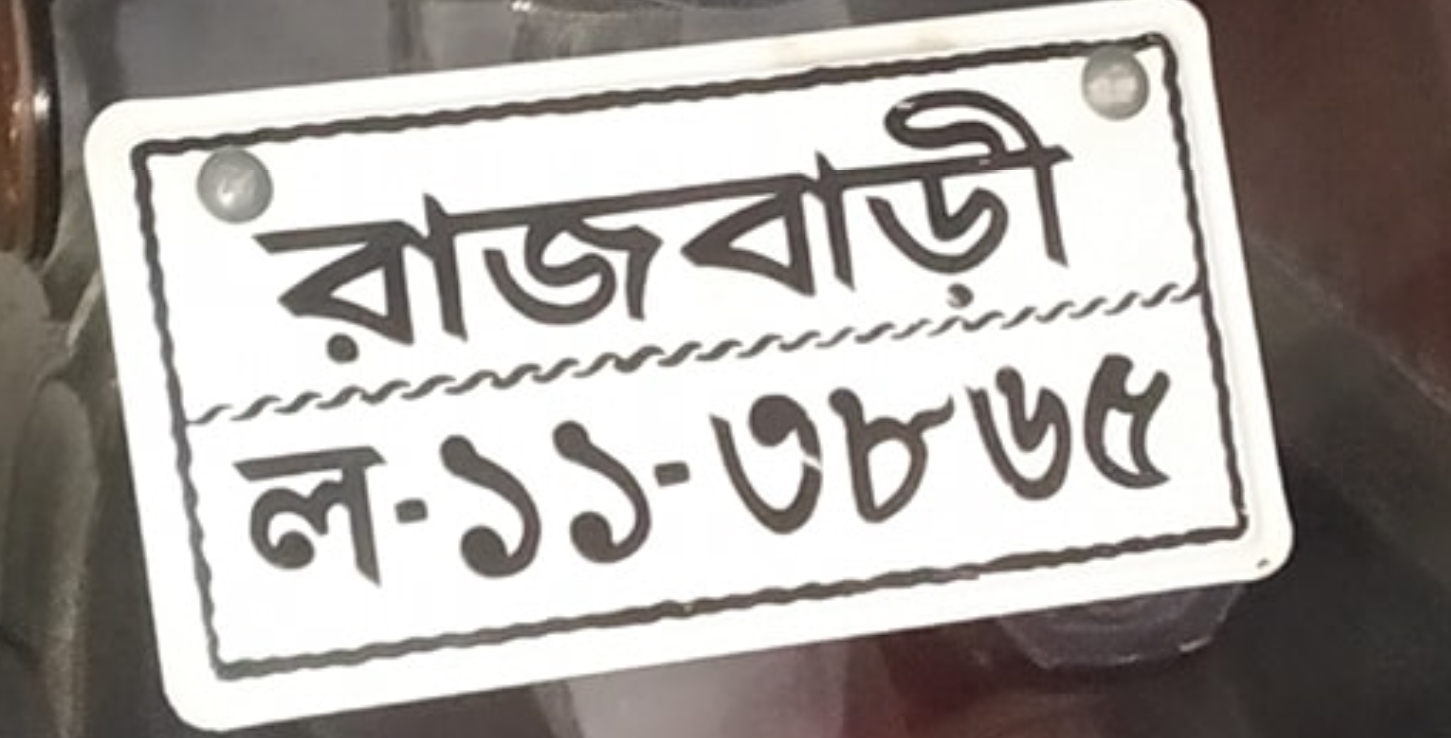 রাজবাড়ী
ল-১১-৩৮৬৫